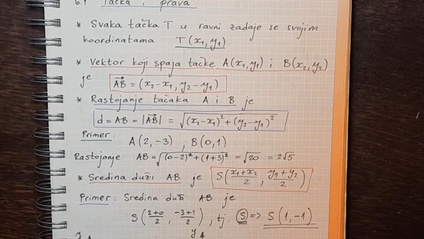 6.1 Tačka i prava
* Svaka tačka T u ravni zadaje se svojim
koordinatama T(x₁,y₁)
* Vektor koji spaja tačke A(x₁,y₁) i B(x₂,y₂)
je AB⃗ = (x₂-x₁, y₂-y₁)
* Rastojanje tačaka A i B je
d = AB = |AB⃗| = √(x₂-x₁)²+(y₂-y₁)²
Primer: A(2,-3), B(0,1)
Rastojanje AB=√(0-2)²+(1+3)² = √20 = 2√5
* Sredina duži AB je S(x₁+x₂/2, y₁+y₂/2)
Primer: Sredina duži AB je
S(2+0/2, -3+1/2), tj. S => S(1,-1)
y
y